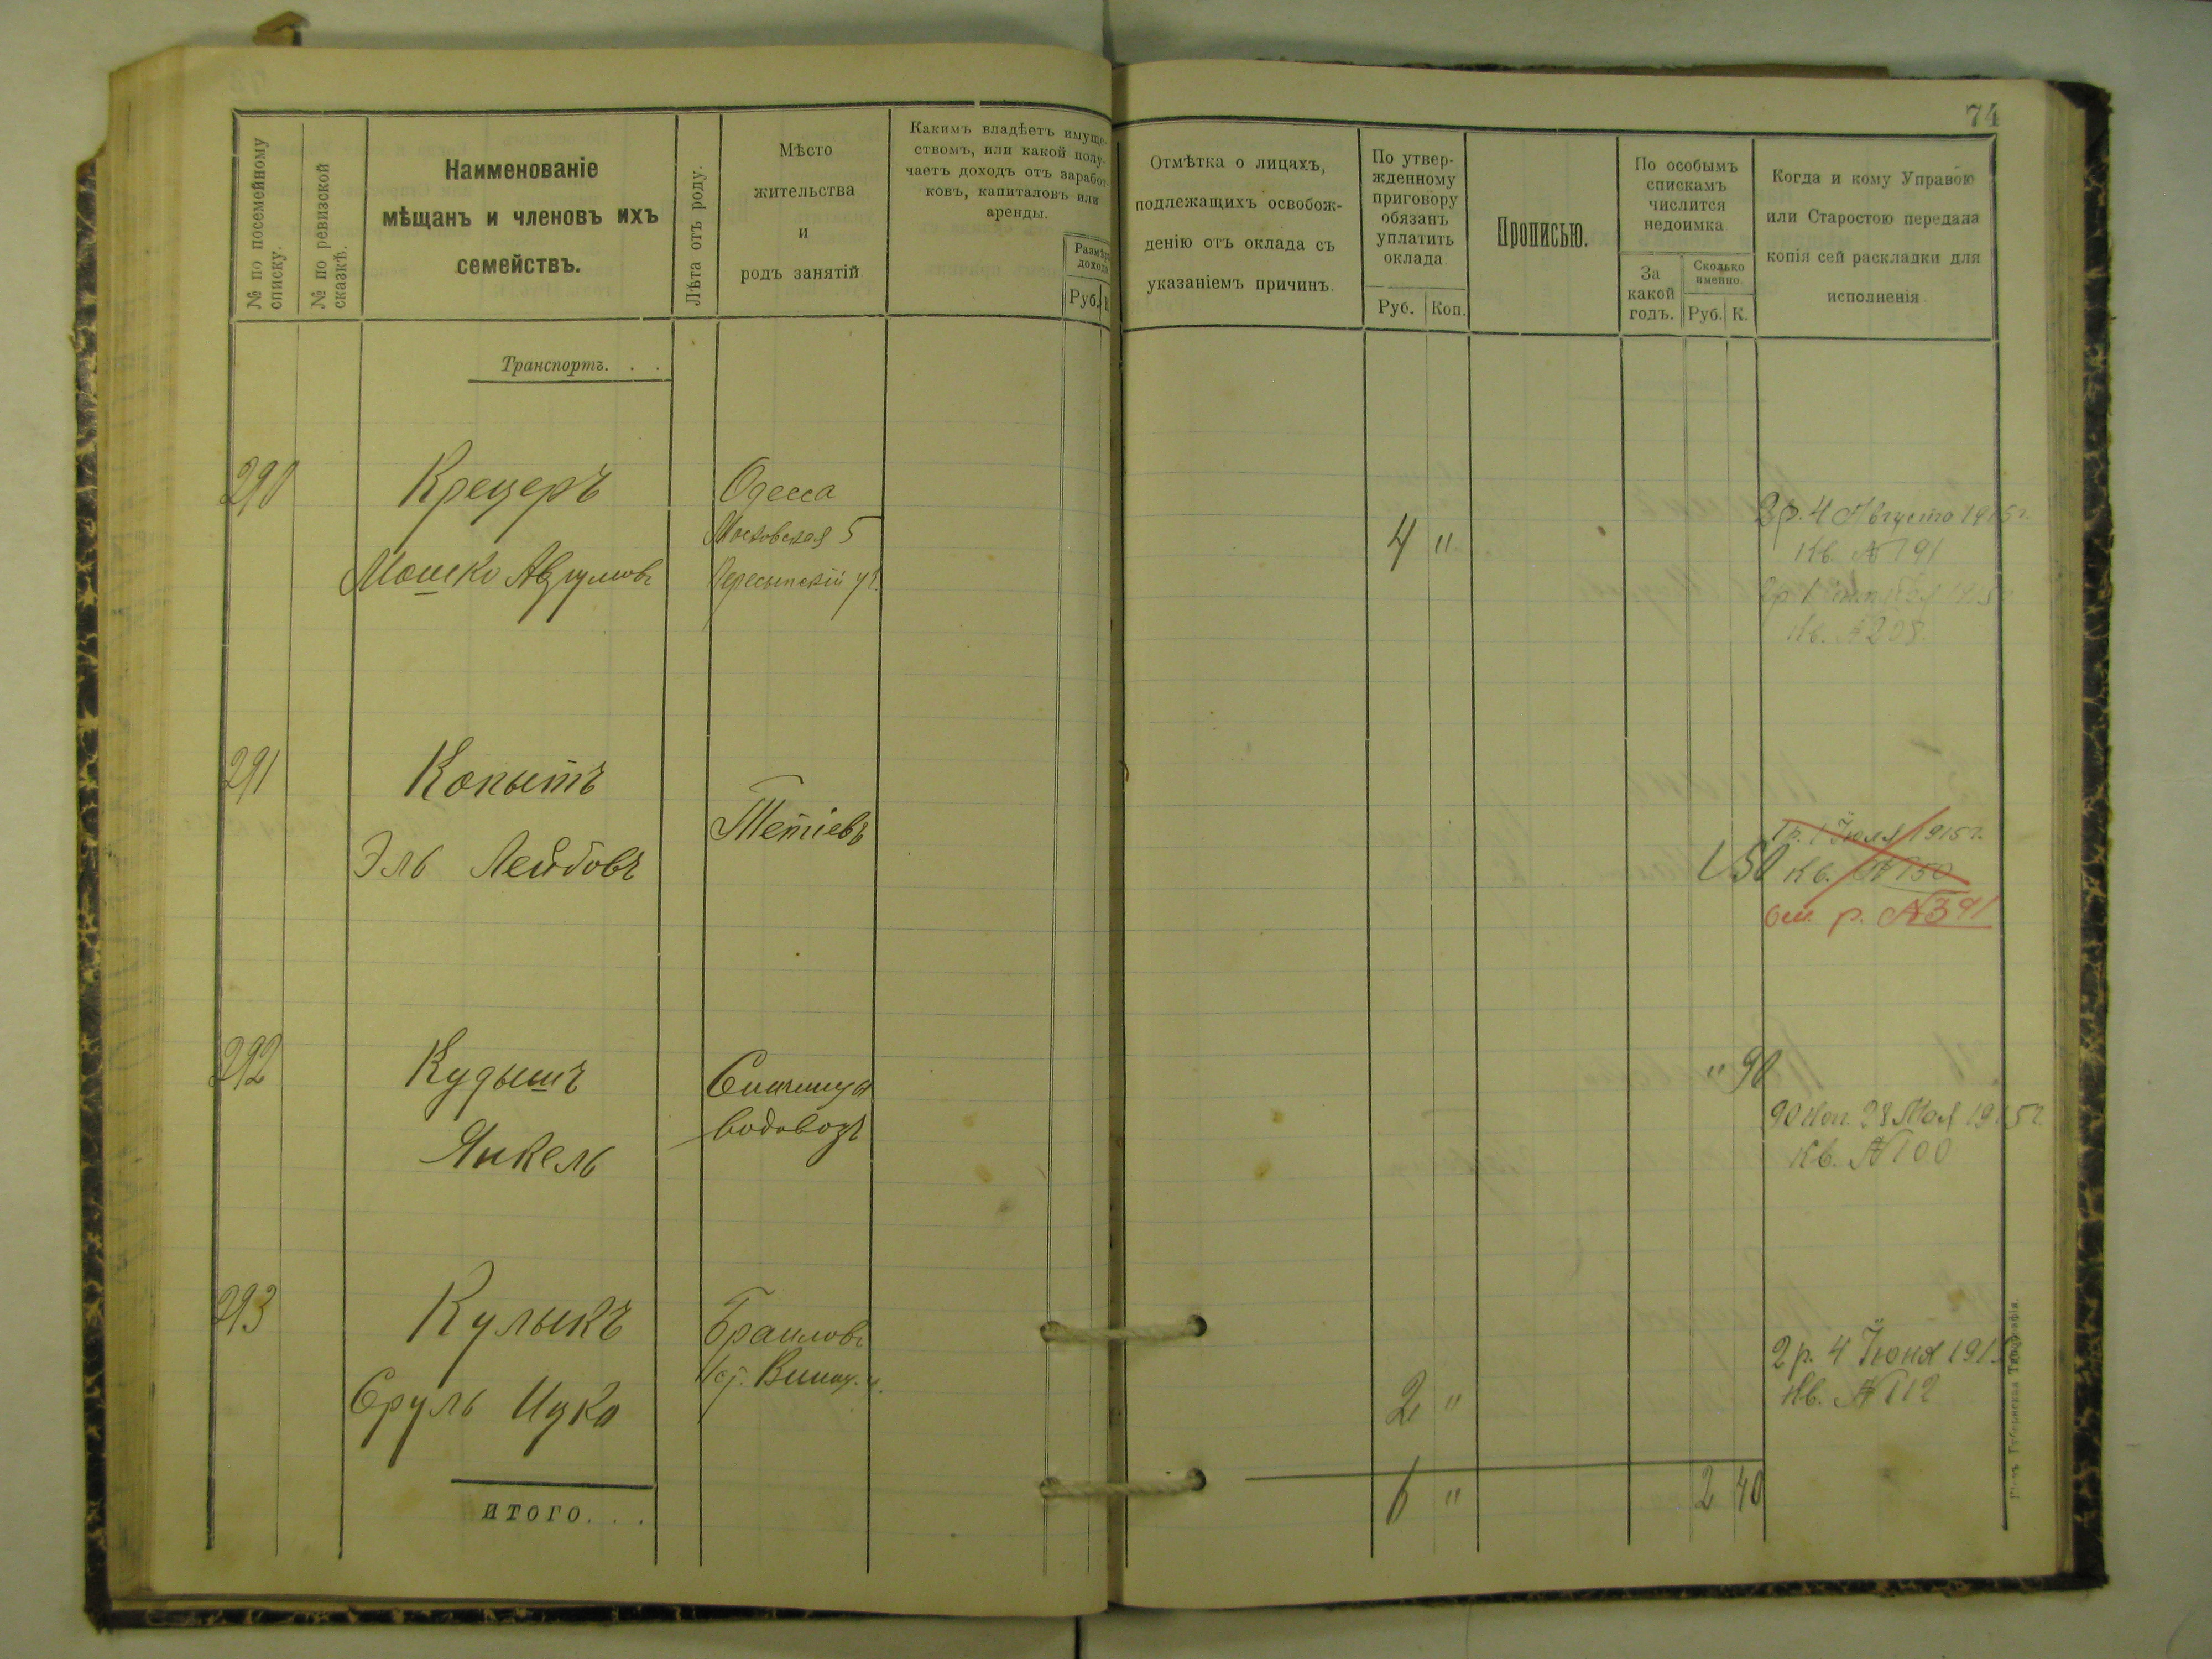 74
№ по посемейному списку.
№ по ревизской сказкѣ.
Наименованіе
мѣщанъ и членовъ ихъ
семействъ.
Лѣта отъ роду.
Мѣсто
жительства
и
родъ занятій
Какимъ владѣетъ имуще-
ствомъ, или какой полу-
чаетъ доходъ отъ заработ-
ковъ, капиталовъ или
аренды.
Размѣръ
дохода
Руб. К.
Отмѣтка о лицахъ,
подлежащихъ освобож-
денію отъ оклада съ
указаніемъ причинъ.
По утвер-
жденному
приговору
обязанъ
уплатить
оклада
Руб. Коп.
Прописью.
По особымъ
спискамъ
числится
недоимка
За
какой
годъ.
Сколько
именно.
Руб. К.
Когда и кому Управою
или Старостою передана
копія сей раскладки для
исполненія
Транспортъ. . .
290
Крецеръ
Мошко Аврумовъ
Одесса
Московская 5
Пересыпскій уч.
4 "
2 р. 4 Августа 1915 г.
Кв. № 191
2 р 1 1915
Кв. № 208.
291
Копытъ
Эль Лейбовъ
Тетіевъ
1 50
1 р. 1 Июля 1915 г.
Кв. № 150
р. № 391
292
Кудышъ
Янкель
водовозъ
" 90
90 коп. 28 Мая 1915 г.
Кв. № 100
293
Кулыкъ
Сруль Ицко
Браиловъ
2 "
2 р. 4 Июня 1915
Кв. № 112
итого. . .
6 "
2 40